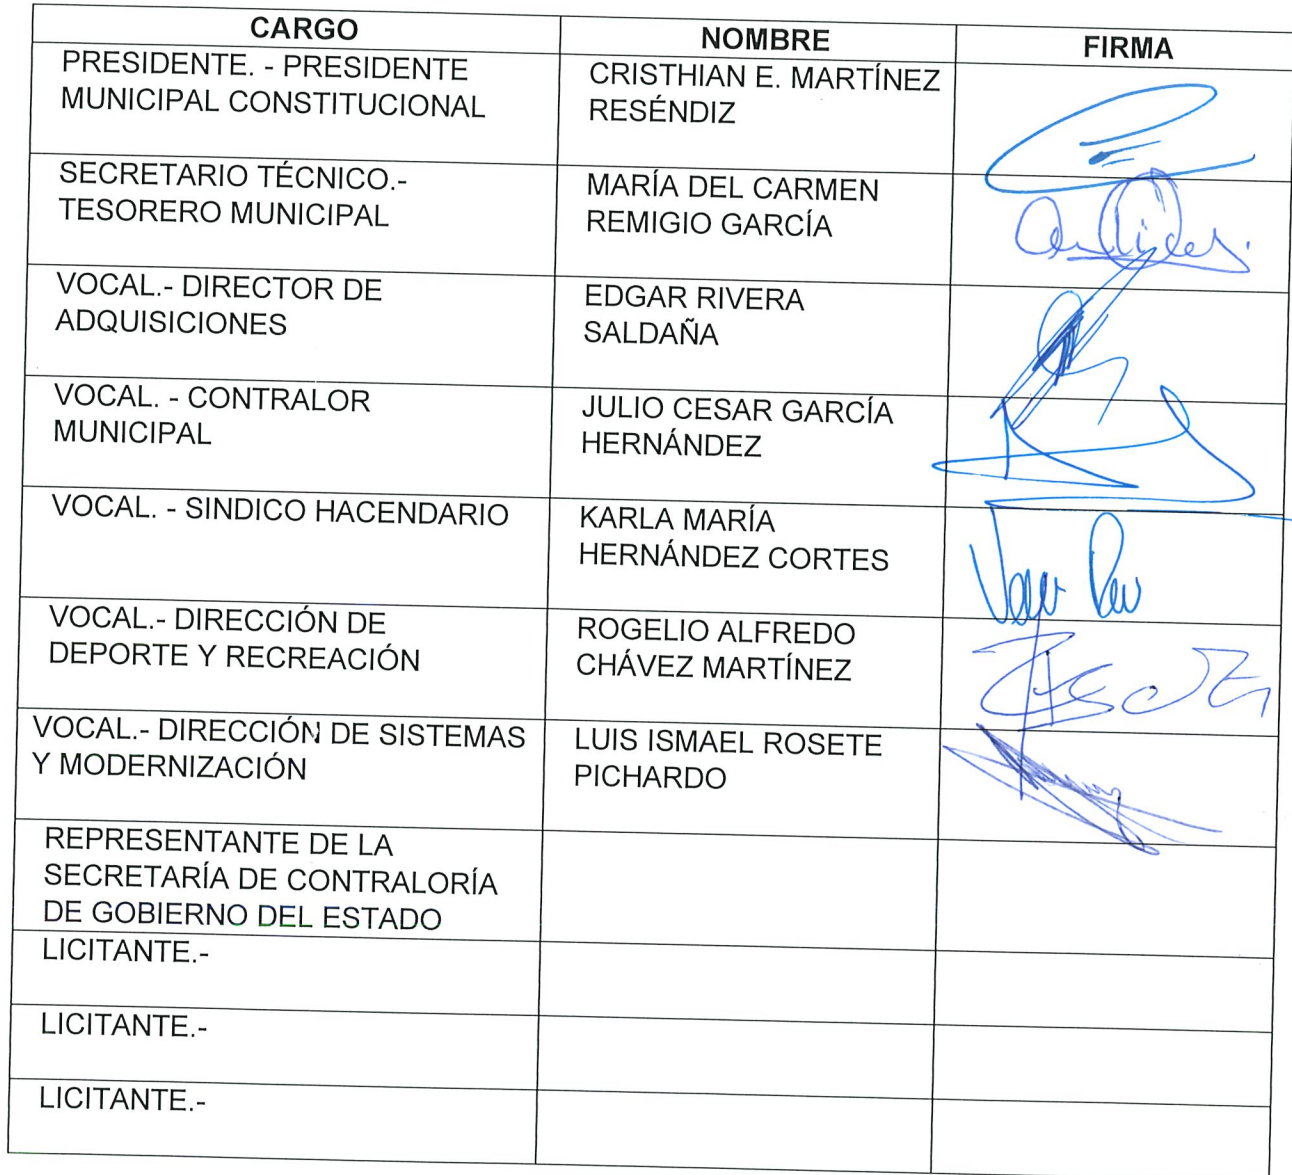 CARGO
NOMBRE
FIRMA
PRESIDENTE. - PRESIDENTE
MUNICIPAL CONSTITUCIONAL
CRISTHIAN E. MARTÍNEZ
RESÉNDIZ
SECRETARIO TÉCNICO.-
TESORERO MUNICIPAL
MARÍA DEL CARMEN
REMIGIO GARCÍA
VOCAL.- DIRECTOR DE
ADQUISICIONES
EDGAR RIVERA
SALDAÑA
VOCAL. - CONTRALOR
MUNICIPAL
JULIO CESAR GARCÍA
HERNÁNDEZ
VOCAL. - SINDICO HACENDARIO
KARLA MARÍA
HERNÁNDEZ CORTES
VOCAL.- DIRECCIÓN DE
DEPORTE Y RECREACIÓN
ROGELIO ALFREDO
CHÁVEZ MARTÍNEZ
VOCAL.- DIRECCIÓN DE SISTEMAS
Y MODERNIZACIÓN
LUIS ISMAEL ROSETE
PICHARDO
REPRESENTANTE DE LA
SECRETARÍA DE CONTRALORÍA
DE GOBIERNO DEL ESTADO
LICITANTE.-
LICITANTE.-
LICITANTE.-